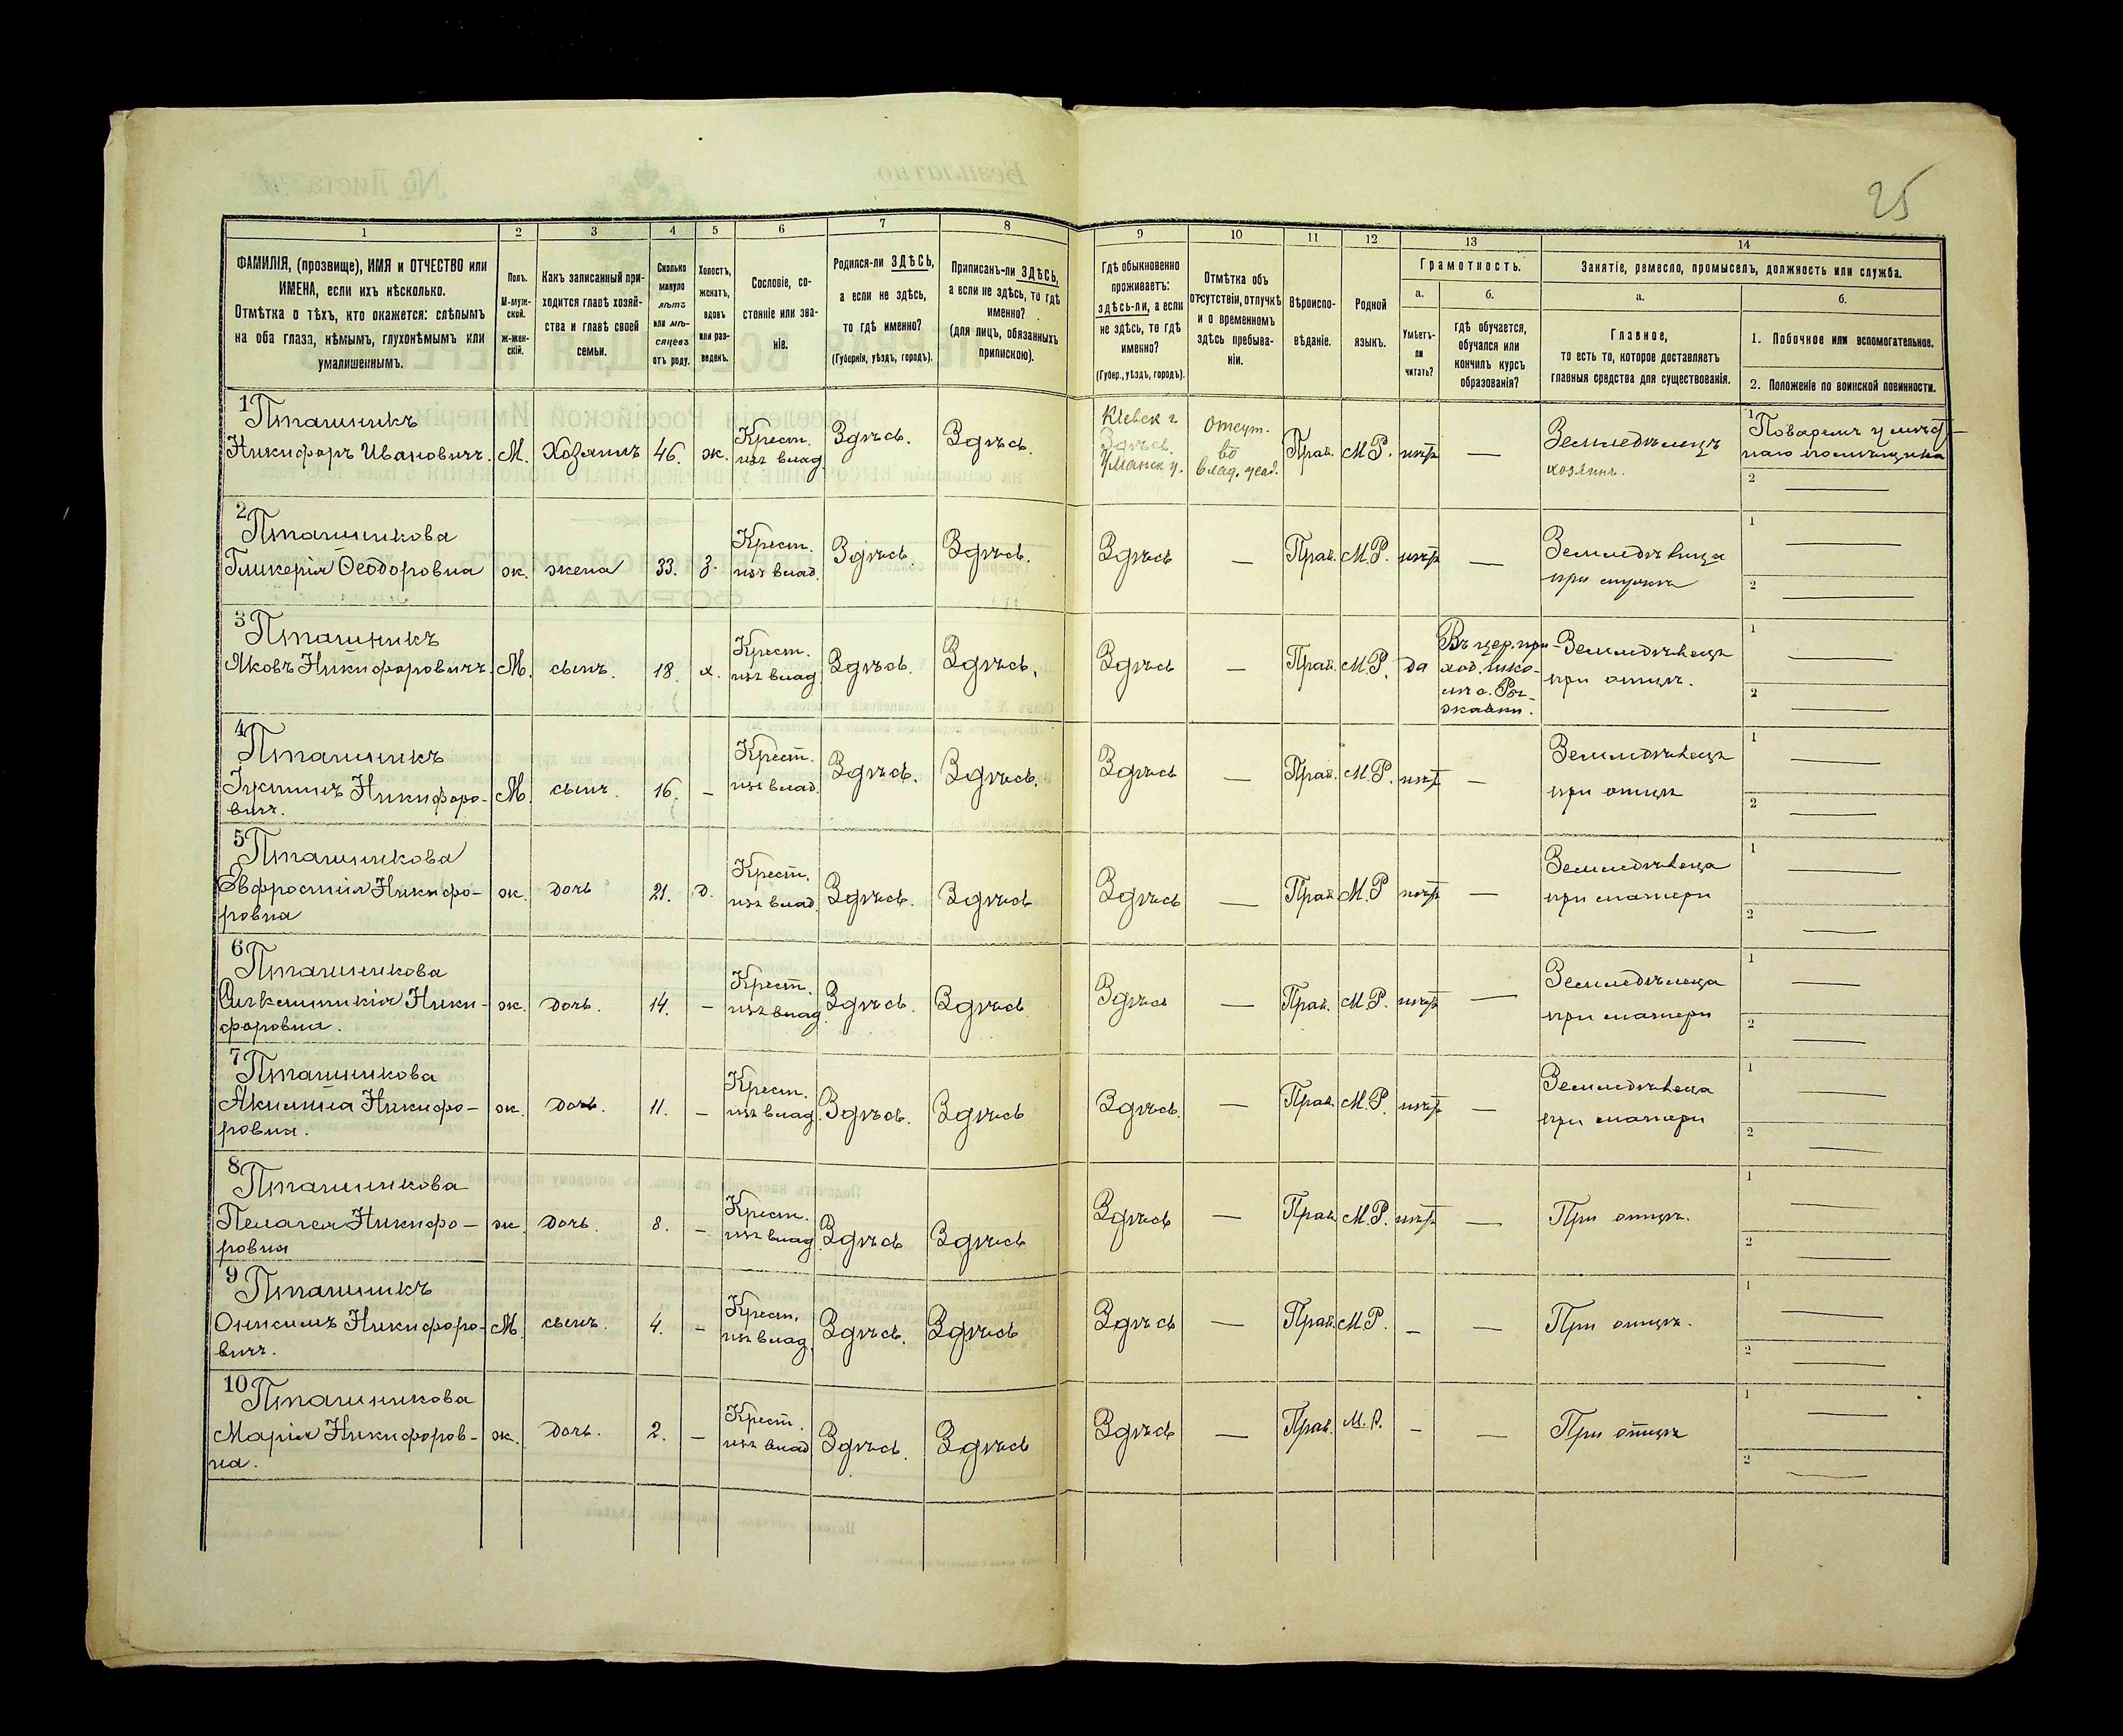 25
1 2 3 4 5 6 7 8 9 10 11 12 13 14
ФАМИЛІЯ, (прозвище), ИМЯ и ОТЧЕСТВО или
ИМЕНА, если ихъ нѣсколько.
Отмѣтка о тѣхъ, кто окажется: слѣпымъ
на оба глаза, нѣмымъ, глухонѣмымъ или
умалишеннымъ.
Полъ.
М-муж-
ской.
Ж-жен-
скій.
Какъ записанный при-
ходится главѣ хозяй-
ства и главѣ своей
семьи.
Сколько
минуло
лѣтъ
или мѣ-
сяцевъ
отъ роду.
Холостъ,
женатъ,
вдовъ
или раз-
веденъ.
Сословіе, со-
стояніе или зва-
ніе.
Родился-ли ЗДѢСЬ,
а если не здѣсь,
то гдѣ именно?
(Губернія, уѣздъ, городъ).
Приписанъ-ли ЗДѢСЬ,
а если не здѣсь, то гдѣ
именно?
(для лицъ, обязанныхъ
припискою).
Гдѣ обыкновенно
проживаетъ:
здѣсь-ли, а если
не здѣсь, то гдѣ
именно?
(Губер., уѣздъ, городъ).
Отмѣтка объ
отсутствіи, отлучкѣ
и о временномъ
здѣсь пребыва-
ніи.
Вѣроиспо-
вѣданіе.
Родной
языкъ.
Грамотность.
а.
Умѣетъ-
ли
читать?
б.
гдѣ обучается,
обучался или
кончилъ курсъ
образованія?
Занятіе, ремесло, промыселъ, должность или служба.
а.
Главное,
то есть то, которое доставляетъ
главныя средства для существованія.
б.
1. Побочное или вспомогательное.
2. Положеніе по воинской повинности.
1 Пташникъ
Никифоръ Ивановичъ. М. Хозяинъ 46. ж. Крест. изъ влад. Здѣсь. Здѣсь.
Кіевск г
Здѣсь.
Уманск у.
Отсут.
во
влад. усад.
Прав. М.Р. нѣтъ —
Земледѣлецъ
хозяинъ.
1 Поваремъ у мѣст-
наго помѣщика
2 —
2 Пташникова
Гликерія Ѳеодоровна ж. жена 33. з. Крест. изъ влад. Здѣсь Здѣсь. Здѣсь — Прав. М.Р. нѣтъ —
Земледѣлица
при мужѣ
1 —
2 —
3 Пташникъ
Яковъ Никифоровичъ. М. сынъ. 18. х. Крест. изъ влад. Здѣсь. Здѣсь. Здѣсь — Прав. М.Р. да
Въ цер. при-
ход. шко-
лѣ с. Ры-
жавки.
Земледѣлецъ
при отцѣ.
1 —
2 —
4 Пташникъ
Никифоро-
вичъ. М. сынъ. 16. — Крест. изъ влад. Здѣсь. Здѣсь. Здѣсь — Прав. М.Р. нѣтъ —
Земледѣлецъ
при отцѣ
1 —
2 —
5 Пташникова
Евфросинія Никифо-
ровна ж. дочь 21. д. Крест. изъ влад. Здѣсь. Здѣсь Здѣсь — Прав. М.Р нѣтъ —
Земледѣлица
при матери
1 —
2 —
6 Пташникова
Ники-
форовна. ж. дочь. 14. — Крест. изъ влад. Здѣсь. Здѣсь. Здѣсь — Прав. М.Р. нѣтъ —
Земледѣлица
при матери
1 —
2 —
7 Пташникова
Акилина Никифо-
ровна. ж. дочь. 11. — Крест. изъ влад. Здѣсь. Здѣсь Здѣсь. — Прав. М.Р. нѣтъ —
Земледѣлица
при матери
1 —
2 —
8 Пташникова
Пелагея Никифо-
ровна ж. дочь. 8. — Крест. изъ влад. Здѣсь Здѣсь Здѣсь — Прав. М.Р. нѣтъ —
При отцѣ.
1 —
2 —
9 Пташникъ
Онисимъ Никифоро-
вичъ. М. сынъ. 4. — Крест. изъ влад. Здѣсь. Здѣсь Здѣсь — Прав. М.Р. — —
При отцѣ.
1 —
2 —
10 Пташникова
Марія Никифоров-
на. ж. дочь. 2. — Крест. изъ влад Здѣсь. Здѣсь Здѣсь — Прав. М.Р. — —
При отцѣ
1 —
2 —